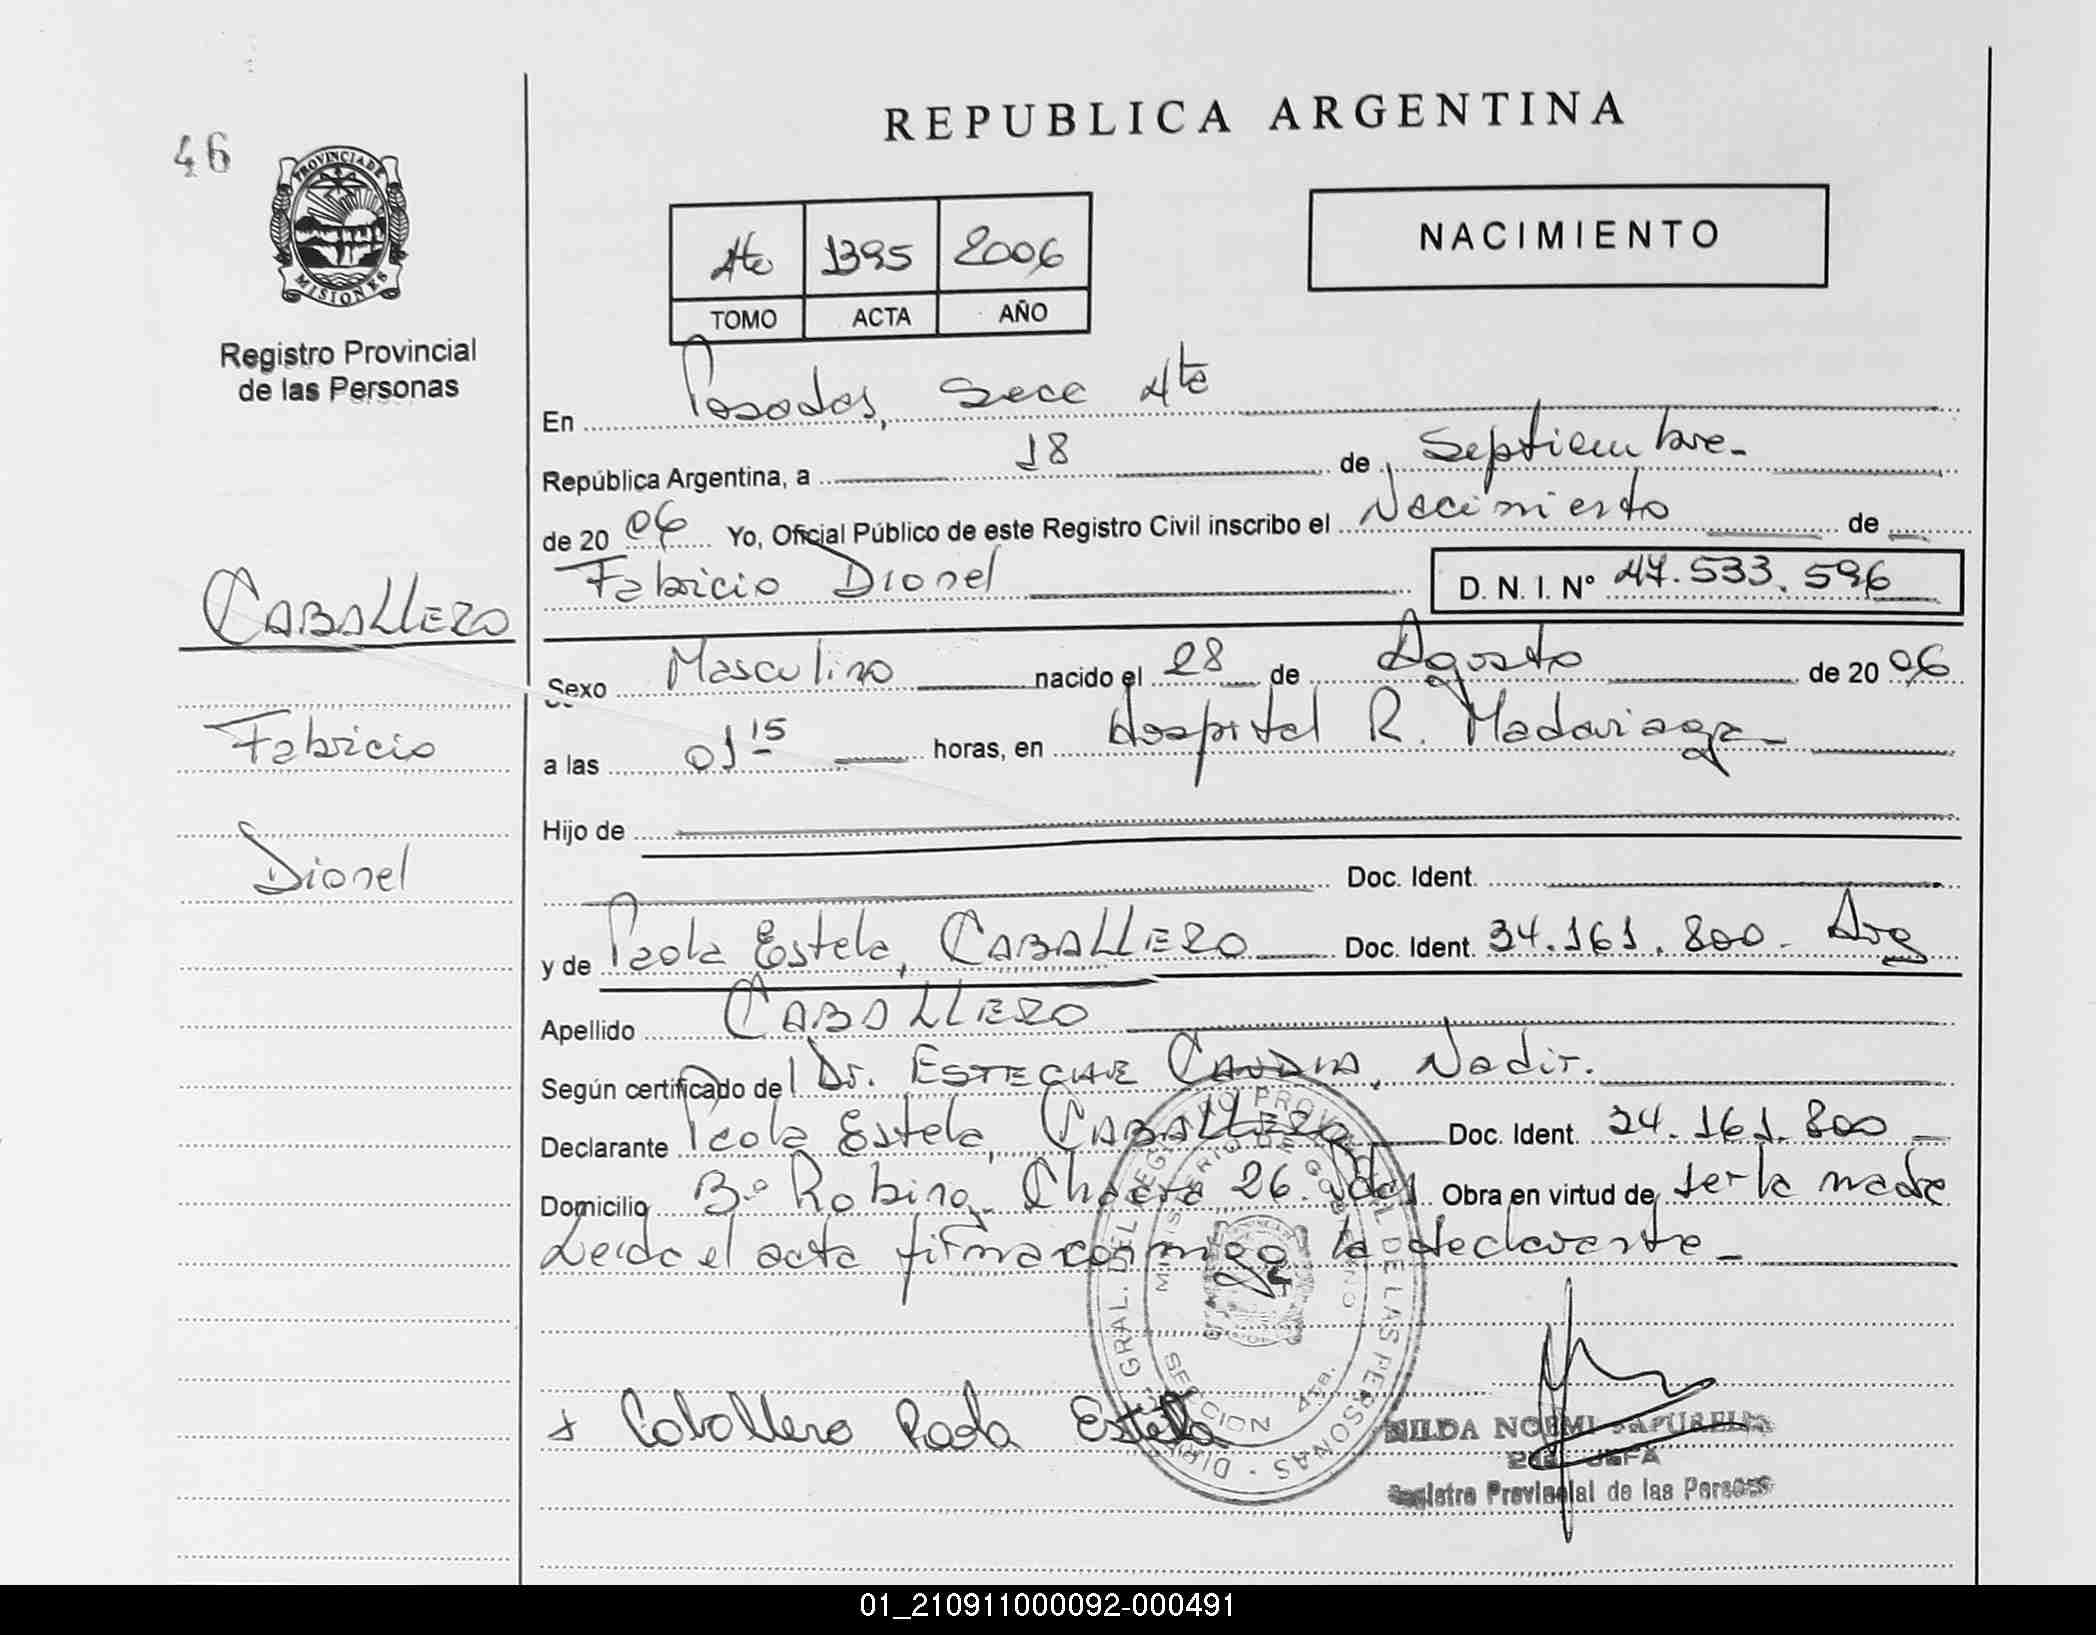 REPUBLICA ARGENTINA
46
PROVINCIA DE
MISIONES
Registro Provincial
de las Personas
NACIMIENTO
4ta 1395 2006
TOMO ACTA AÑO
En Posadas, Secc 4ta
República Argentina, a 18 de Septiembre.
de 20 06 Yo, Oficial Público de este Registro Civil inscribo el Nacimiento de
Fabricio Dionel D. N. I. Nº 47.533.596
CABALLERO
Fabricio
Dionel
Sexo Masculino nacido el 28 de Agosto de 20 06
a las 01 15 horas, en Hospital R. Madariaga
Hijo de
Doc. Ident.
y de Paola Estela, CABALLERO Doc. Ident. 34.161.800. Arg
Apellido CABALLERO
Según certificado de Dr. ESTECHE Nadir.
Declarante Paola Estela, CABALLERO Doc. Ident. 34.161.800
Domicilio Bº Robino. Chacra 26. Pdas Obra en virtud de ser la madre
Leida el acta firma conmigo la declarante
+ Caballero Paola Estela
DIR. GRAL. DEL REGISTRO PROVINCIAL DE LAS PERSONAS
MINISTERIO DE GOBIERNO
SECCION 4TA.
HILDA NOEMI
JEFA
Registro Provincial de las Personas
01_210911000092-000491